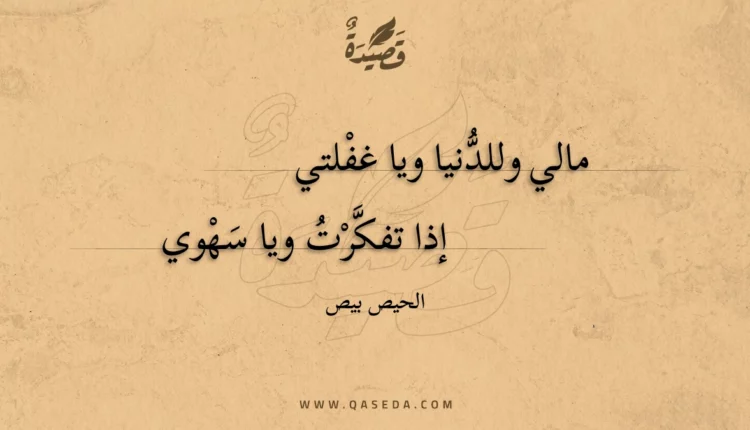 قَصِيْدَةٌ
مالي وللدُّنيا ويا غفْلتي
إذا تفكَّرْتُ ويا سَهْوي
الحيص بيص
WWW.QASEDA.COM